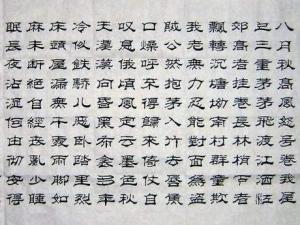 八月秋高風怒號卷我屋
上三重茅茅飛渡江洒江
郊高者挂罥長林梢下者
飄轉沉塘坳南村群童欺
我老無力忍能對面為盜
賊公然抱茅入竹去唇焦
口燥呼不得歸來倚仗自
嘆息俄頃風定雲墨色秋
天漠漠向昏黑布衾多年
冷似鐵驕兒惡臥踏裏裂
床頭屋漏無干處雨腳如
麻未斷絕自經喪亂少睡
眠長夜沾濕何由徹安得